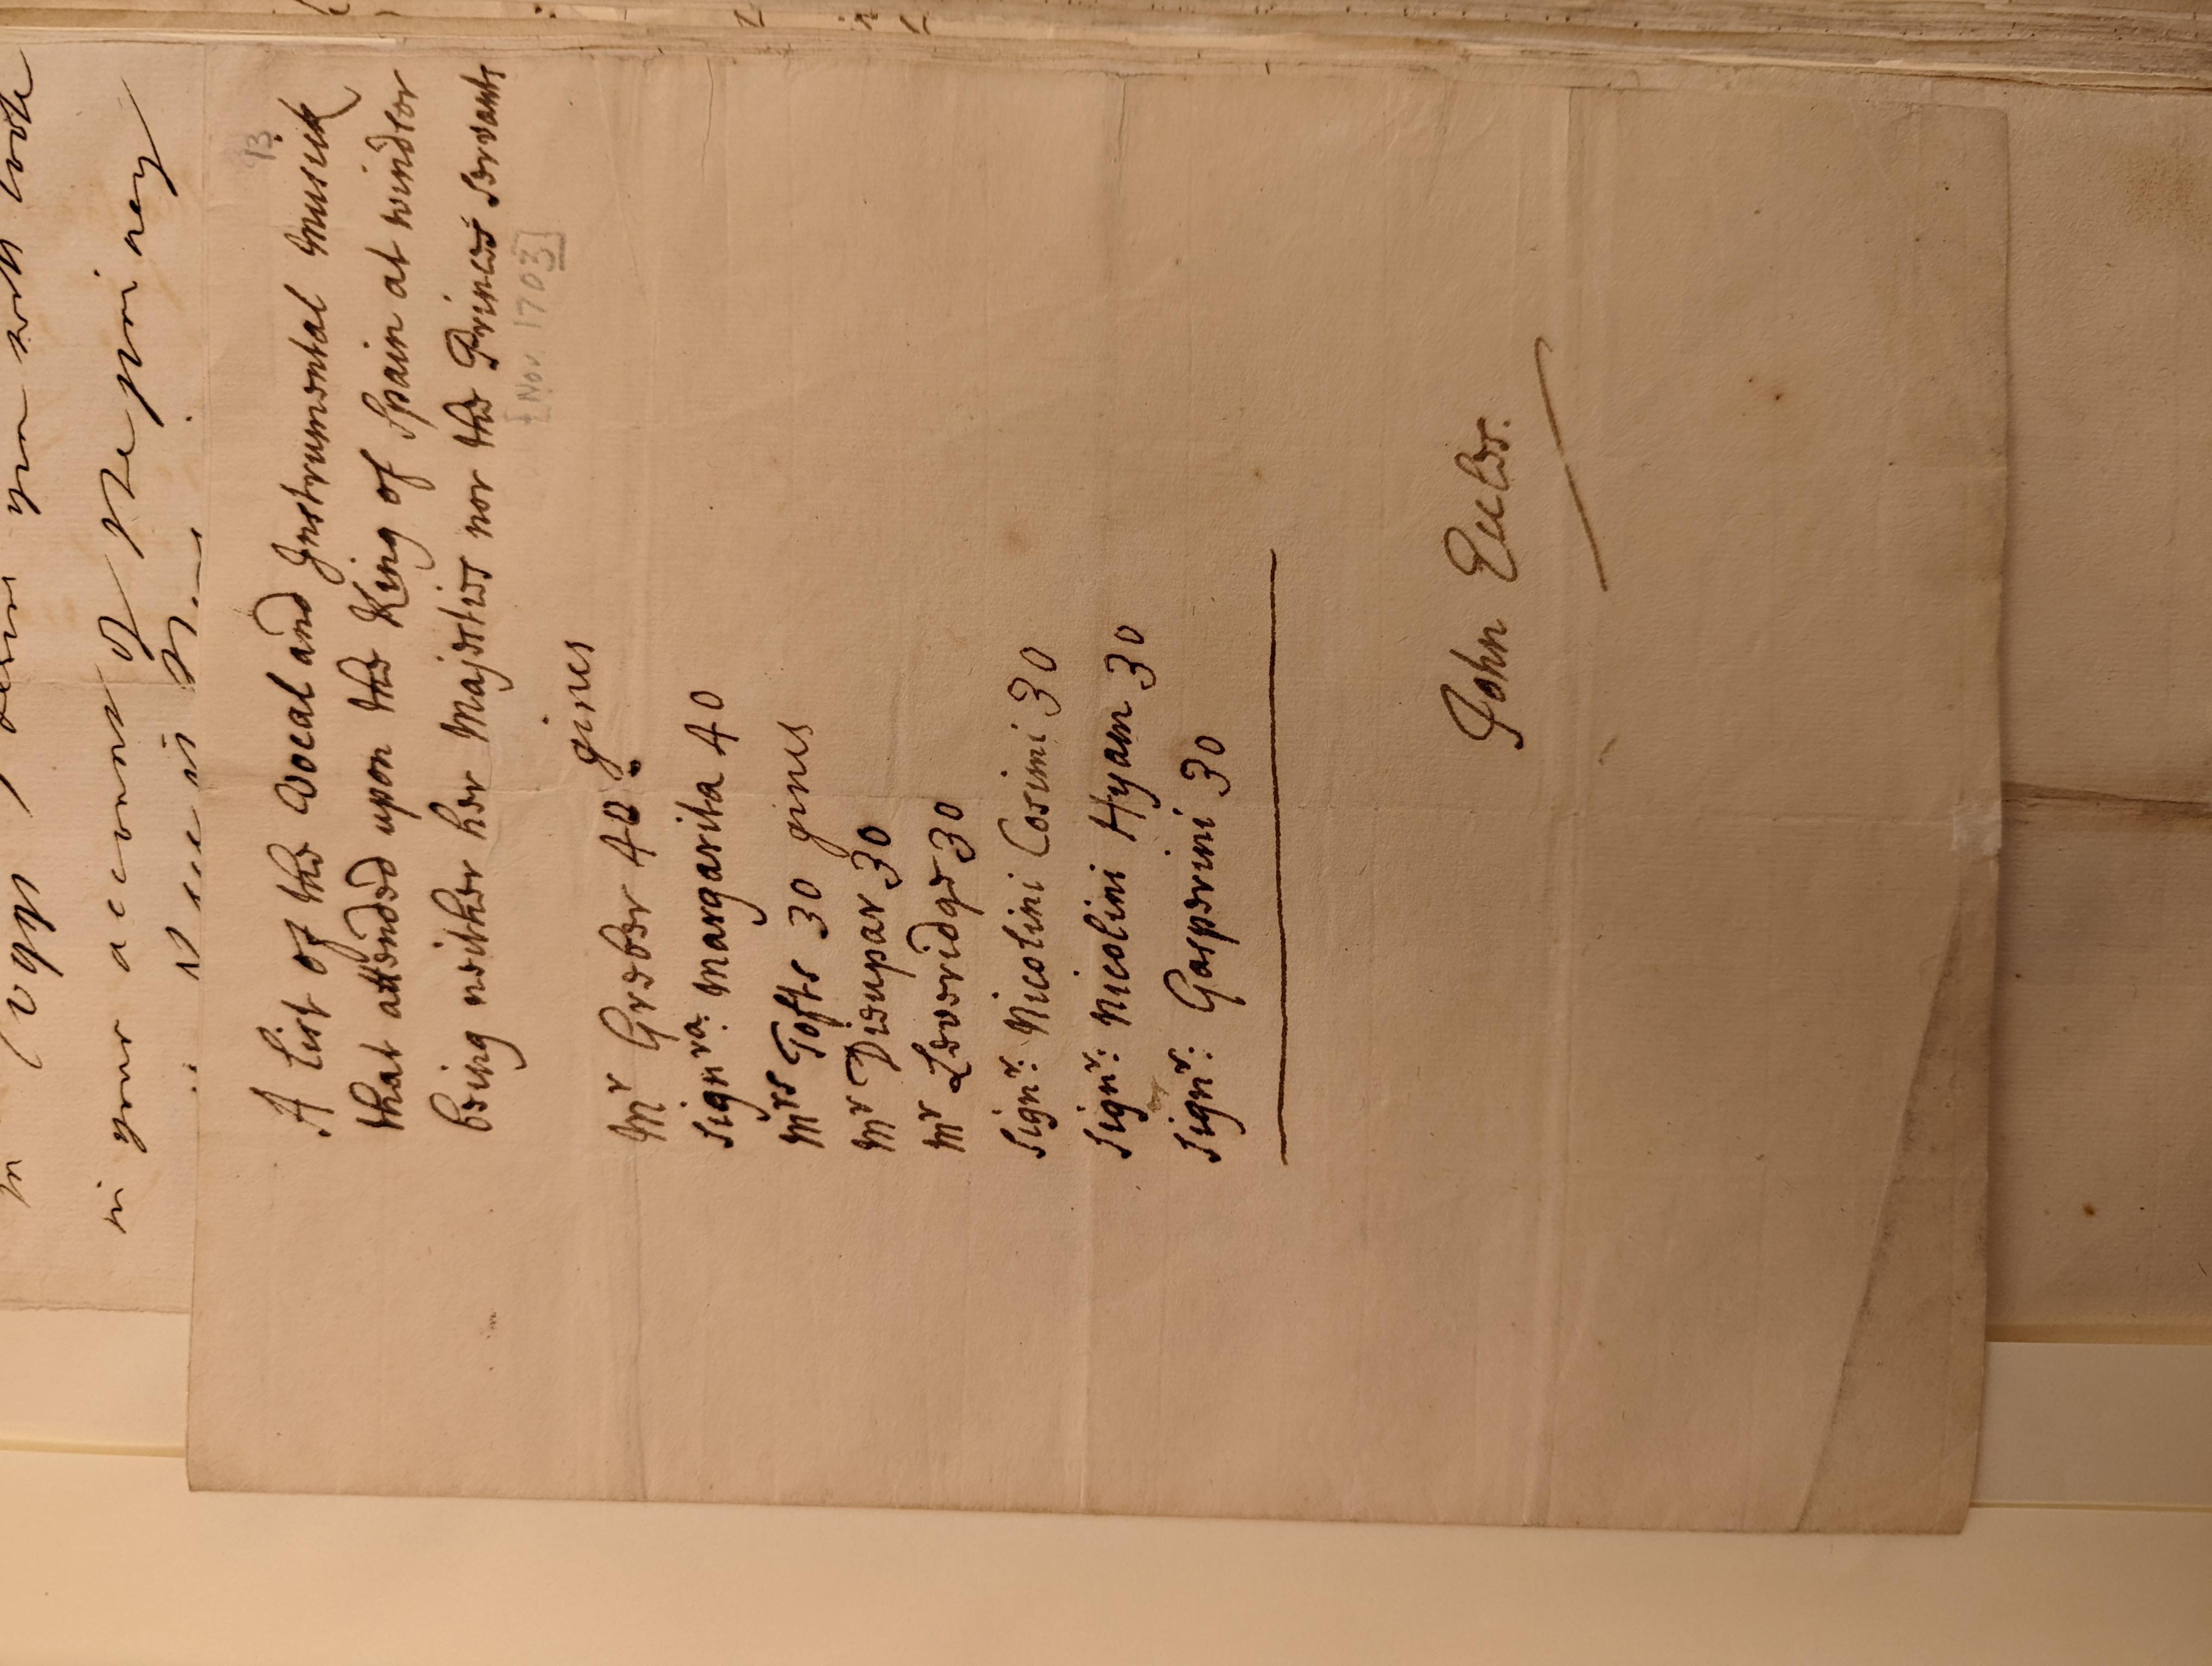 your account of the
93
A List of the Vocal and Instrumental Musick
that attended upon the King of Spain at windsor
being neither her Majesties nor the Princes Servants
[Nov 1703]
gines
Mr Greber 40
Signra: Margarita 40
Mrs Tofts 30 gines
Mr Dieupar 30
Mr Leveridge 30
Signr: Nicolini Cosimi 30
Signr: Nicolini Hyam 30
Signr: Gasperini 30
John Eccles.